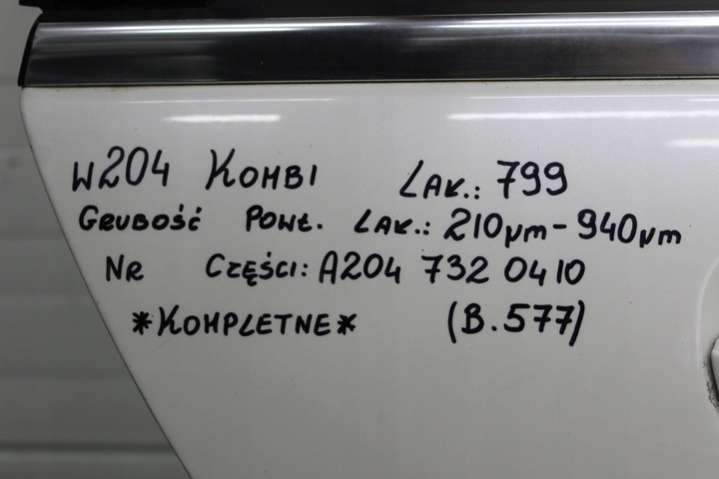 W204 KOMBI LAK.: 799
GRUBOŚĆ POWŁ. LAK.: 210µm - 940µm
NR CZĘŚCI: A204 732 0410
*KOMPLETNE* (B.577)